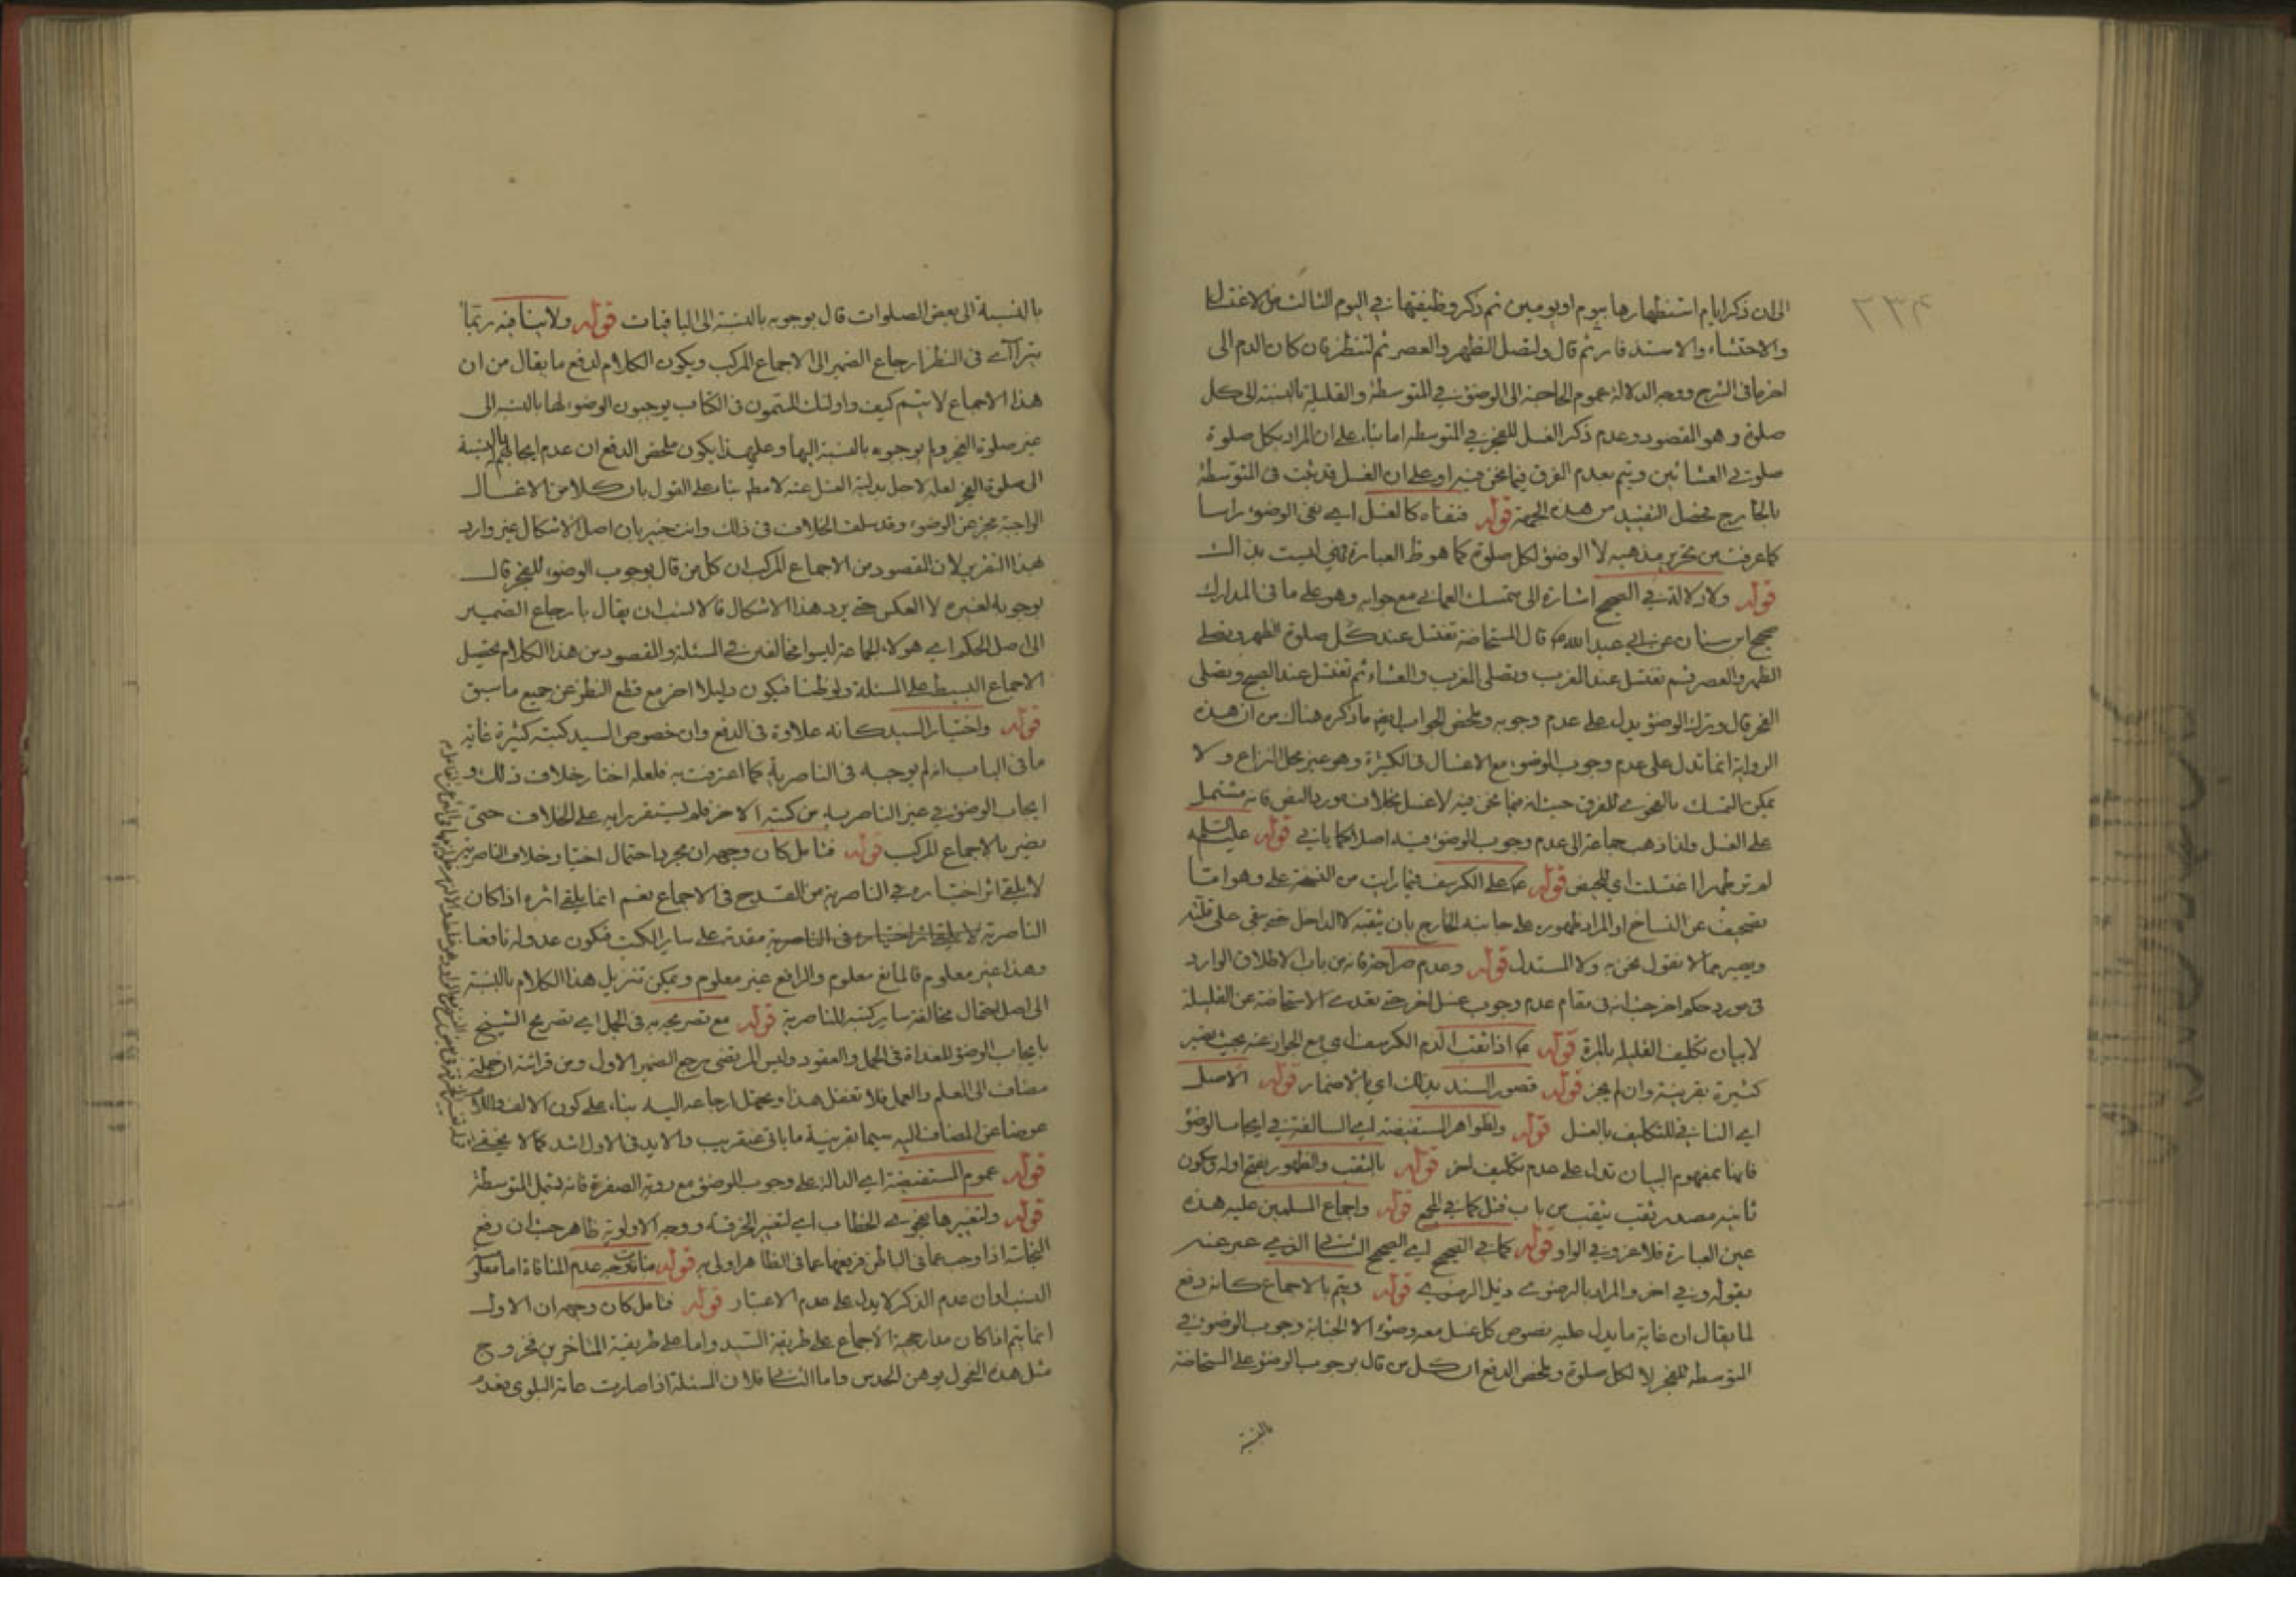 الى ان ذكر ايام استظهارها بيوم او يومين ثم ذكر وظيفتها في اليوم الثالث من الاغتسال
والاحتشاء والاستذفار ثم قال ولتصل الظهر والعصر ثم لتنظر فان كان الدم الى
اخر ما في الشرح ووجه الدلالة عموم الحاجة الى الوضوء في المتوسطة والقليلة بالنسبة الى كل
صلوة وهو المقصود وعدم ذكر الغسل للفجر في المتوسطة اما بناء على ان المراد بكل صلوة
صلوتي العشائين ويتم بعدم الفرق فيما نحن فيه او على ان الغسل قد ثبت في المتوسطة
بالخارج فحصل التقييد من هذه الجهة قوله فنفاه كالغسل اي نفى الوضوء راسا
كما عرفت من تحرير مذهبه لا الوضوء لكل صلوة كما هو ظ العبارة فهي ليست بذاك
قوله ولا دلالة في الصحيح اشارة الى تمسك العماني مع جوابه وهو على ما في المدارك
صحيح ابن سنان عن ابي عبد الله ع قال المستحاضة تغتسل عند كل صلوة الظهر وتصلي
الظهر والعصر ثم تغتسل عند المغرب وتصلي المغرب والعشاء ثم تغتسل عند الصبح وتصلي
الفجر قال وترك الوضوء يدل على عدم وجوبه وملخص الجواب ما ذكره هناك من ان هذه
الرواية انما تدل على عدم وجوب الوضوء مع الاغتسال في الكثيرة وهو غير محل النزاع ولا
يمكن التمسك بالفحوى للفرق حيث انه فيما نحن فيه لا غسل بخلاف مورد النص فانه مشتمل
على الغسل ولذا ذهب جماعة الى عدم وجوب الوضوء فيه اصلا كما ياتي قوله عليه السلم
لم تر طهرا اغتسلت اي للحيض قوله ع على الكرسف فيما رايت من النسخة على وهو اما
تصحيف عن النساخ او المراد ظهوره على جانبه الخارج بان يثقبه لا الداخل حتى يبقى على قلته
ويصير مما لا نقول نحن به ولا المستدل قوله وعدم صراحته فانه من باب الاطلاق الوارد
في مورد حكم اخر حيث انه في مقام عدم وجوب غسل اخر حتى تعدت الاستحاضة عن القليلة
لا بيان تكليف القليلة بالمرة قوله ع اذا ثقب الدم الكرسف اي مع الجواز عنه بحيث تصير
كثيرة بقرينة وان لم يجز قوله قصور السند بذلك اي بالاضمار قوله الاصل
اي النافي للتكليف بالغسل قوله ولظواهر المستفيضة اي السالفة في ايجاب الوضوء
فانها بمفهوم البيان تدل على عدم تكليف اخر قوله بالثقب والظهور بفتح اوله وسكون
ثانيه مصدر ثقب يثقب من باب قتل كما في المجمع قوله واجماع المسلمين عليه هذه
عين العبارة فلا غرو في الواو قوله كما في الصحيح اي الصحيح الثاني الذي عبر عنه
بقوله وفي اخر والمراد بالرضوي ذيل الرضوي قوله ويتم بالاجماع كانه دفع
لما يقال ان غاية ما يدل عليه نصوص كل غسل معه وضوء الا الجنابة وجوب الوضوء في
المتوسطة للفجر لا لكل صلوة وملخص الدفع ان كل من قال بوجوب الوضوء على المستحاضة
بالنسبة
بالنسبة الى بعض الصلوات قال بوجوبه بالنسبة الى الباقيات قوله ولا ينافيه ربما
يترااى في النظر ارجاع الضمير الى الاجماع المركب ويكون الكلام لدفع ما يقال من ان
هذا الاجماع لا يتم كيف واولئك المسمون في الكتاب يوجبون الوضوء لها بالنسبة الى
غير صلوة الفجر ولم يوجبوه بالنسبة اليها وعلى هذا يكون ملخص الدفع ان عدم ايجابهم بالنسبة
الى صلوة الفجر لعله لاجل بدلية الغسل عنه لا مطم بناء على القول بان كلا من الاغسال
الواجبة مجز عن الوضوء وقد سلف الخلاف في ذلك وانت خبير بان اصل الاشكال غير وارد
بهذا التقرير لان المقصود من الاجماع المركب ان كل من قال بوجوب الوضوء للفجر قال
بوجوبه لغيره لا العكس حتى يرد هذا الاشكال فالانسب ان يقال بارجاع الضمير
الى اصل الحكم اي هولاء الجماعة ليسوا مخالفين في المسئلة والمقصود من هذا الكلام تحصيل
الاجماع البسيط على المسئلة ولو ظنا فيكون دليلا اخر مع قطع النظر عن جميع ما سبق
قوله واختيار السيد كانه علاوة في الدفع وان خصوص السيد كتبه كثيرة غاية
ما في الباب انه لم يوجبه في الناصرية كما اعترفت به فلعله اختار خلاف ذلك و
ايجاب الوضوء في غير الناصرية من كتبه الاخر فلم يستقر رايه على الخلاف حتى
يضير بالاجماع المركب قوله فتامل كان وجهه ان مجرد احتمال اختيار خلاف الناصرية
لا يلقي اثر اختياره في الناصرية من القدح في الاجماع نعم انما يلقي اثره اذا كان
الناصرية لا يلقي اثر اختياره في الناصرية مقدمة على ساير الكتب فيكون عدوله نافعا
وهذا غير معلوم فالمانع معلوم والرافع غير معلوم ويمكن تنزيل هذا الكلام بالنسبة
الى اصل احتمال مخالفة ساير كتبه للناصرية قوله مع تصريحه به في الجمل اي تصريح الشيخ
بايجاب الوضوء للغداة في الجمل والعقود وليس المرتضى مرجع الضمير الاول ومن قرائنه ان جملته
مضاف الى العلم والعمل فلا تغفل هذا ويحتمل ارجاعه اليه بناء على كون الالف واللام
عوضا عن المضاف اليه سيما بقرينة ما ياتي عنقريب والايد في الاول اشد كما لا يخفى
قوله عموم المستفيضة اي الدالة على وجوب الوضوء مع روية الصفرة فانه يشمل المتوسطة
قوله ولتغييرها بفحوى الخطاب اي لتغيير الخرقة ووجه الاولوية ظاهر حيث ان رفع
النجاسة اذا وجب عما في الباطن فرفعها عما في الظاهر اولى به قوله عدم المنافاة اما
السند او ان عدم الذكر لا يدل على عدم الاعتبار قوله فتامل كان وجهه ان الاول
انما يتم اذا كان مدار حجية الاجماع على طريقة السيد واما على طريقة المتاخرين فخروج
مثل هذه الفحول يوهن الحدس واما الثاني فلان المسئلة اذا صارت عامة البلوى فعدم